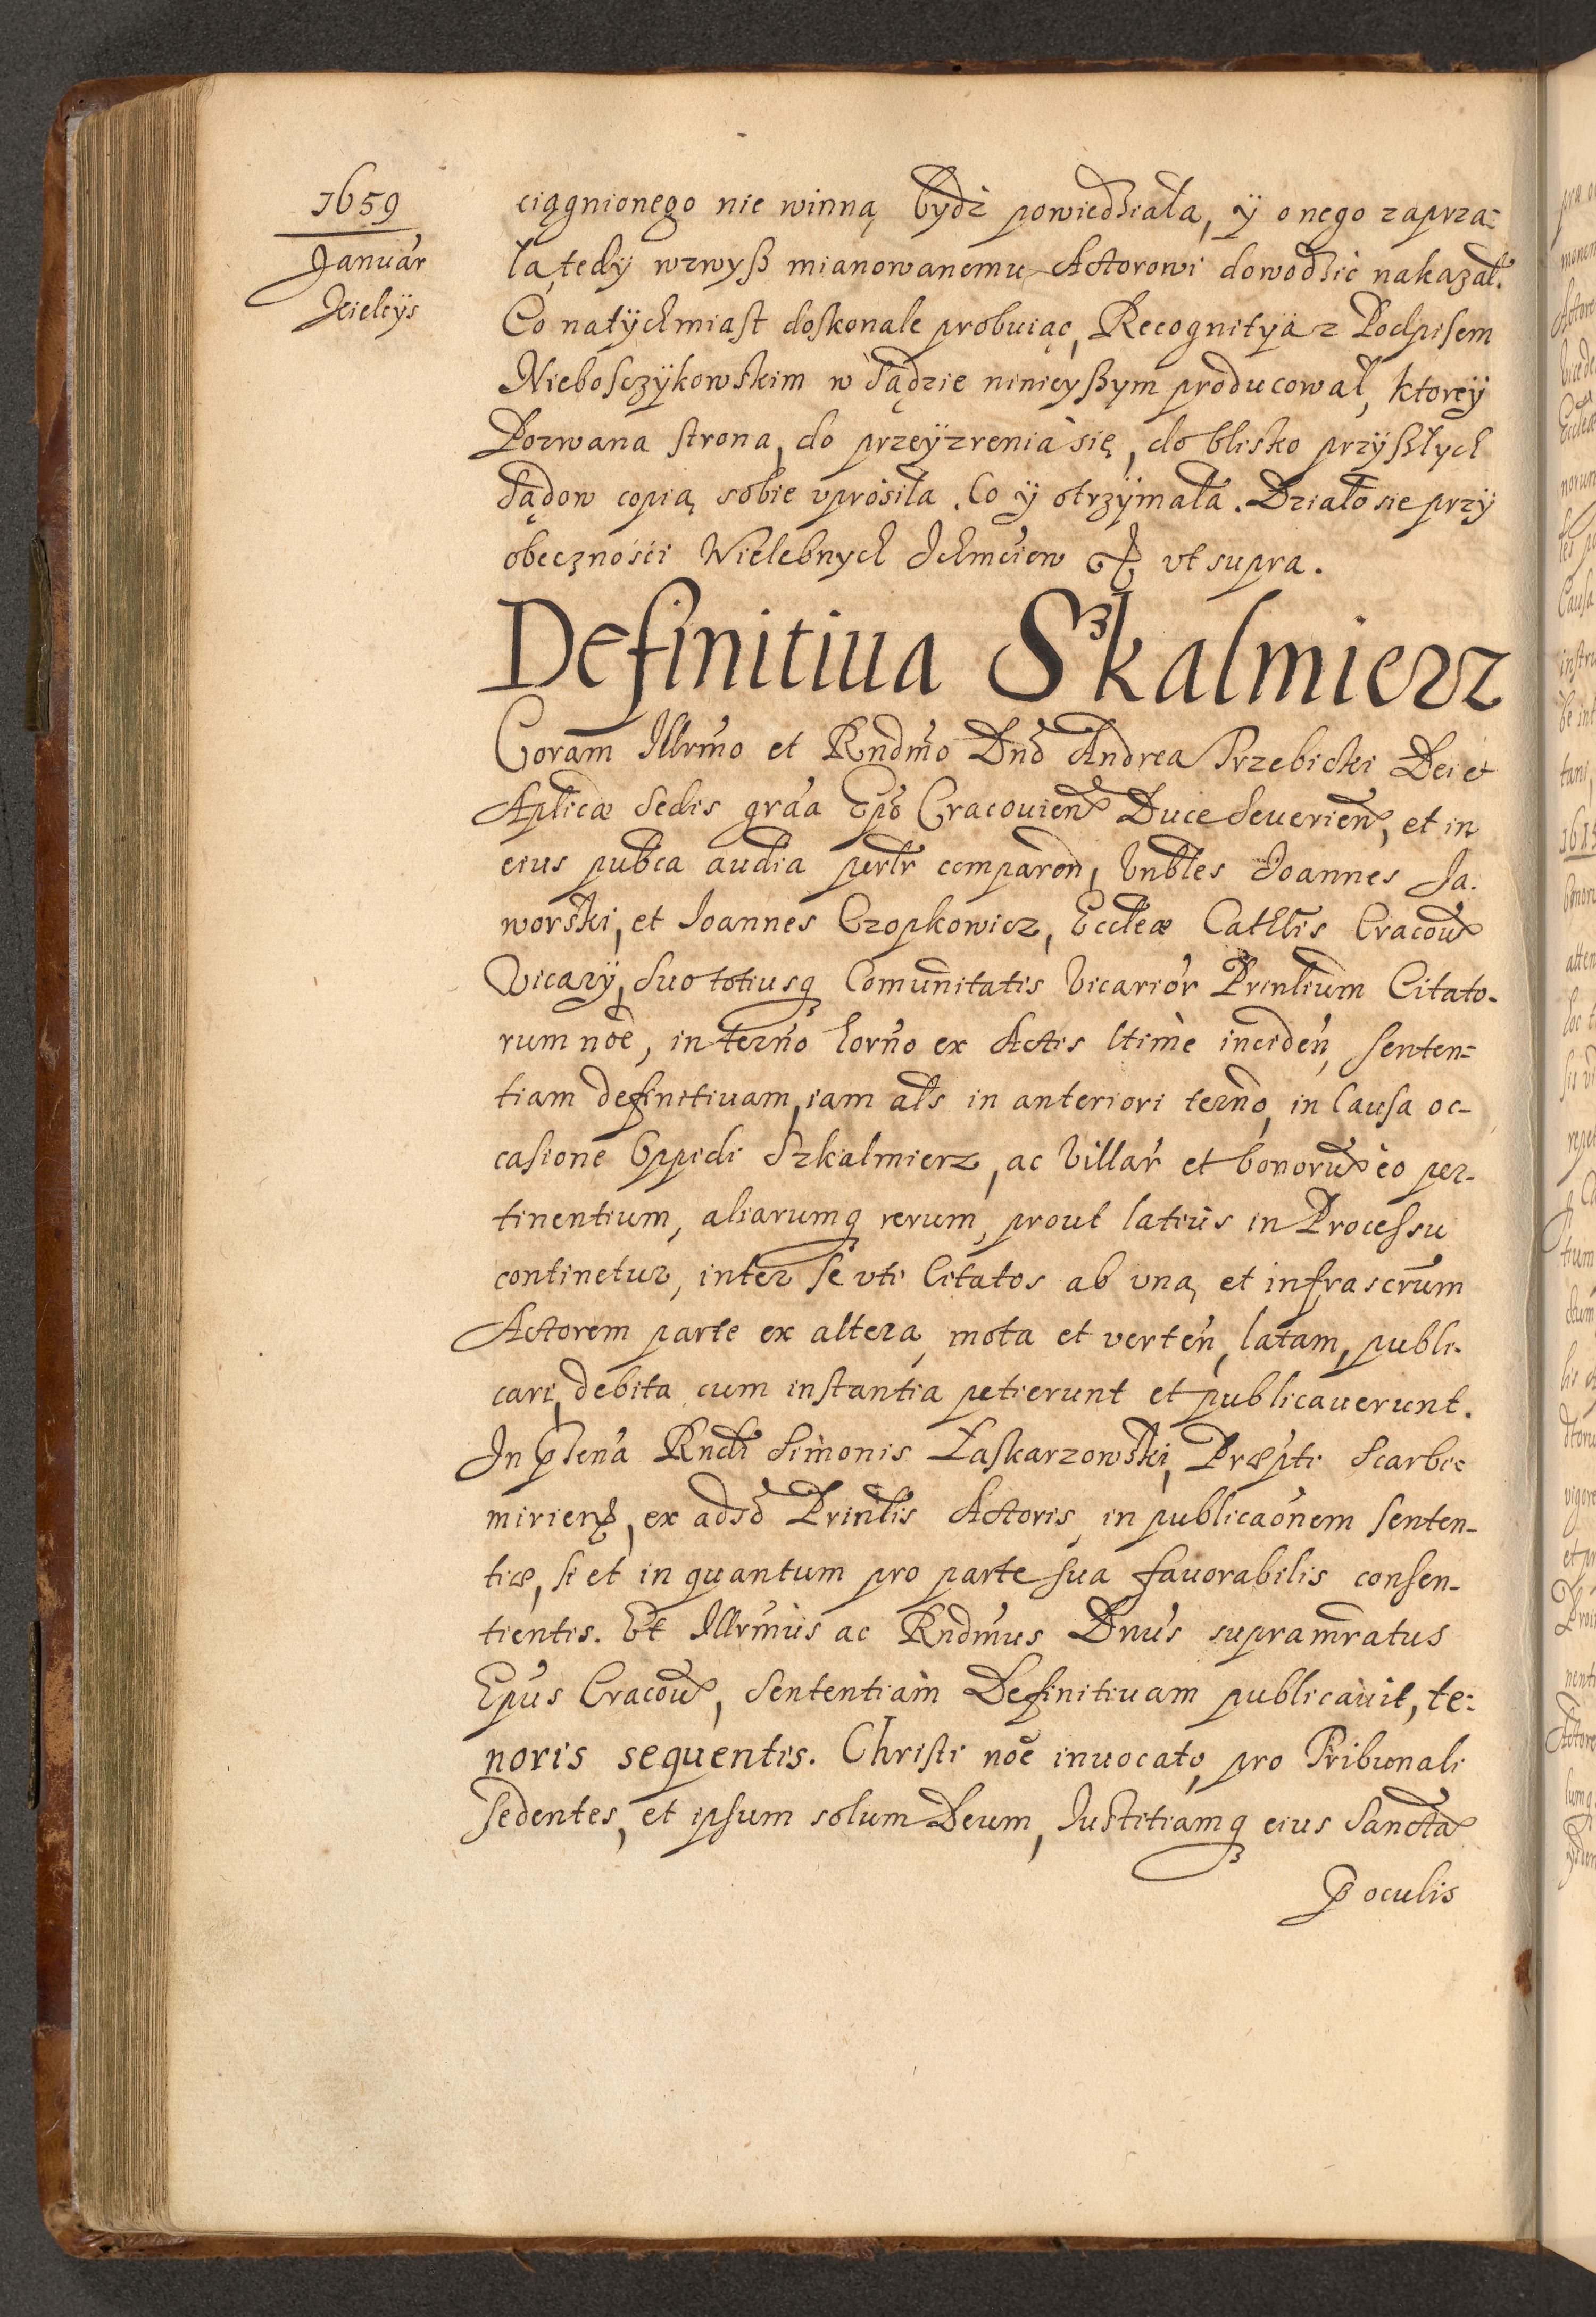 1659
Januar
Kielcÿs
ciągnionego nie winną bydź powiedziała, ÿ onego zaprza=
ła, tedÿ wzwyß mianowanemu Actorowi dowodzić nakazał.
Co natÿchmiast doskonale probuiąc, Recognitÿą z Podpisem
Nieboszczÿkowskim w sądzie ninieyßym producował, ktoreÿ
Pozwana strona, do przeÿzrenia się, do blisko przÿßłych
sądow copią sobie uprosiła. Co ÿ otrzÿmała. Działo sie przÿ
obecznosći Wielebnych Ichmćiow &c ut supra.
Definitiua Szkalmierz
Coram Illrmo et Rndmo Dno Andrea Trzebicki Dei et
Aplicæ Sedis graa Epo Cracouien Duce Seuerien, et in
eius pubca audia perlr comparen, Vnbles Joannes Ja.
worski, et Joannes Czopkowicz, Eccleæ Cathlis Cracou
Vicarÿ, suo totiusq Comunitatis Vicarior Prinlium Citato-
rum noe, in terno horno ex Actis ltime inciden, senten=
tiam definitiuam, iam als in anteriori terno, in Causa oc-
casione Oppidi Szkalmierz, ac Villar et bonorum eo per-
tinentium, aliarumq rerum, prout latius in Processu
continetur, inter se uti Citatos ab una, et infrascrum
Actorem parte ex altera, mota et verten, latam, publi-
cari, debita cum instantia petierunt et publicauerunt.
In pntena Rndi Simonis Łaskarzowski, Præpti Scarbi=
mirien, ex adso Prinlis Actoris, in publicaonem senten-
tiæ, si et in quantum pro parte sua fauorabilis consen-
tientis. Et Illrmus ac Rndmus Dnus supramratus
Epus Cracou, Sententiam Definitiuam publicauit, te=
noris sequentis. Christi noe inuocato, pro Tribunali
sedentes, et ipsum solum Deum, Iustitiamq eius Sancta
P oculis